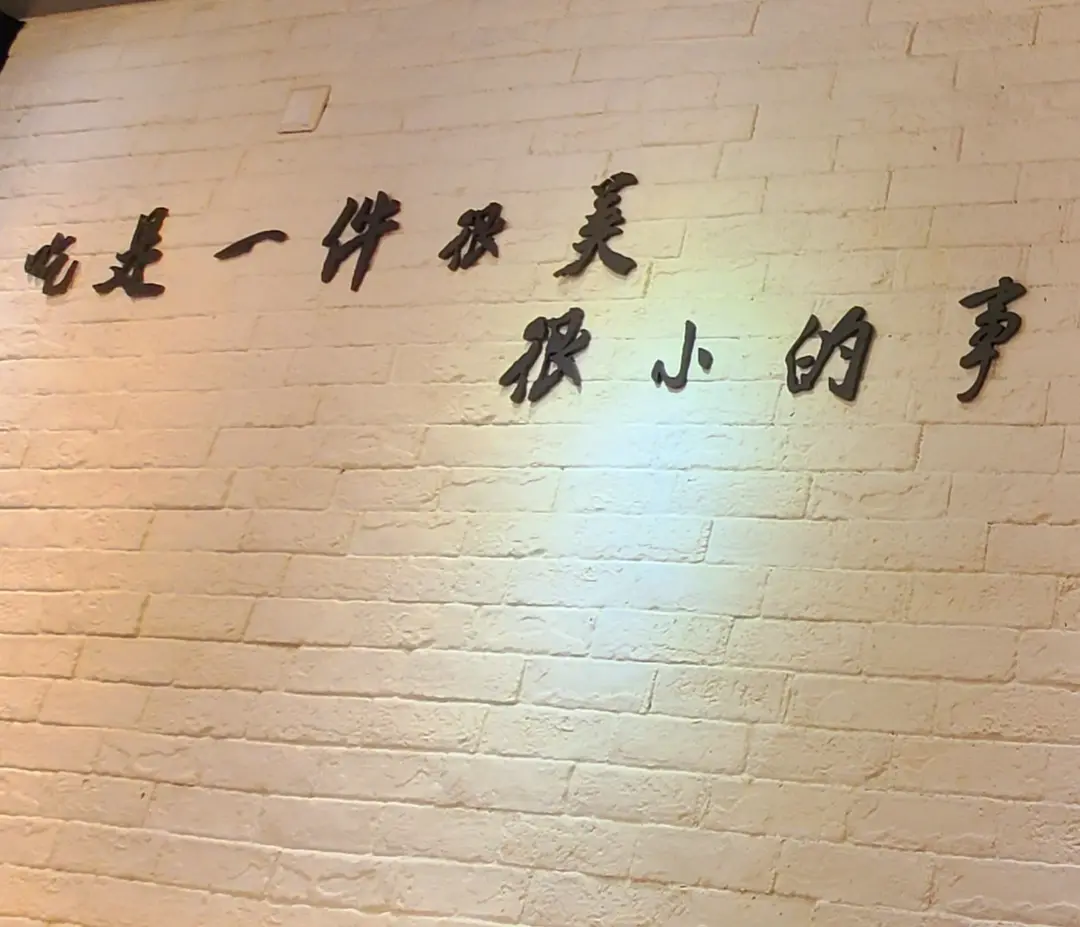 吃是一件很美
很小的事